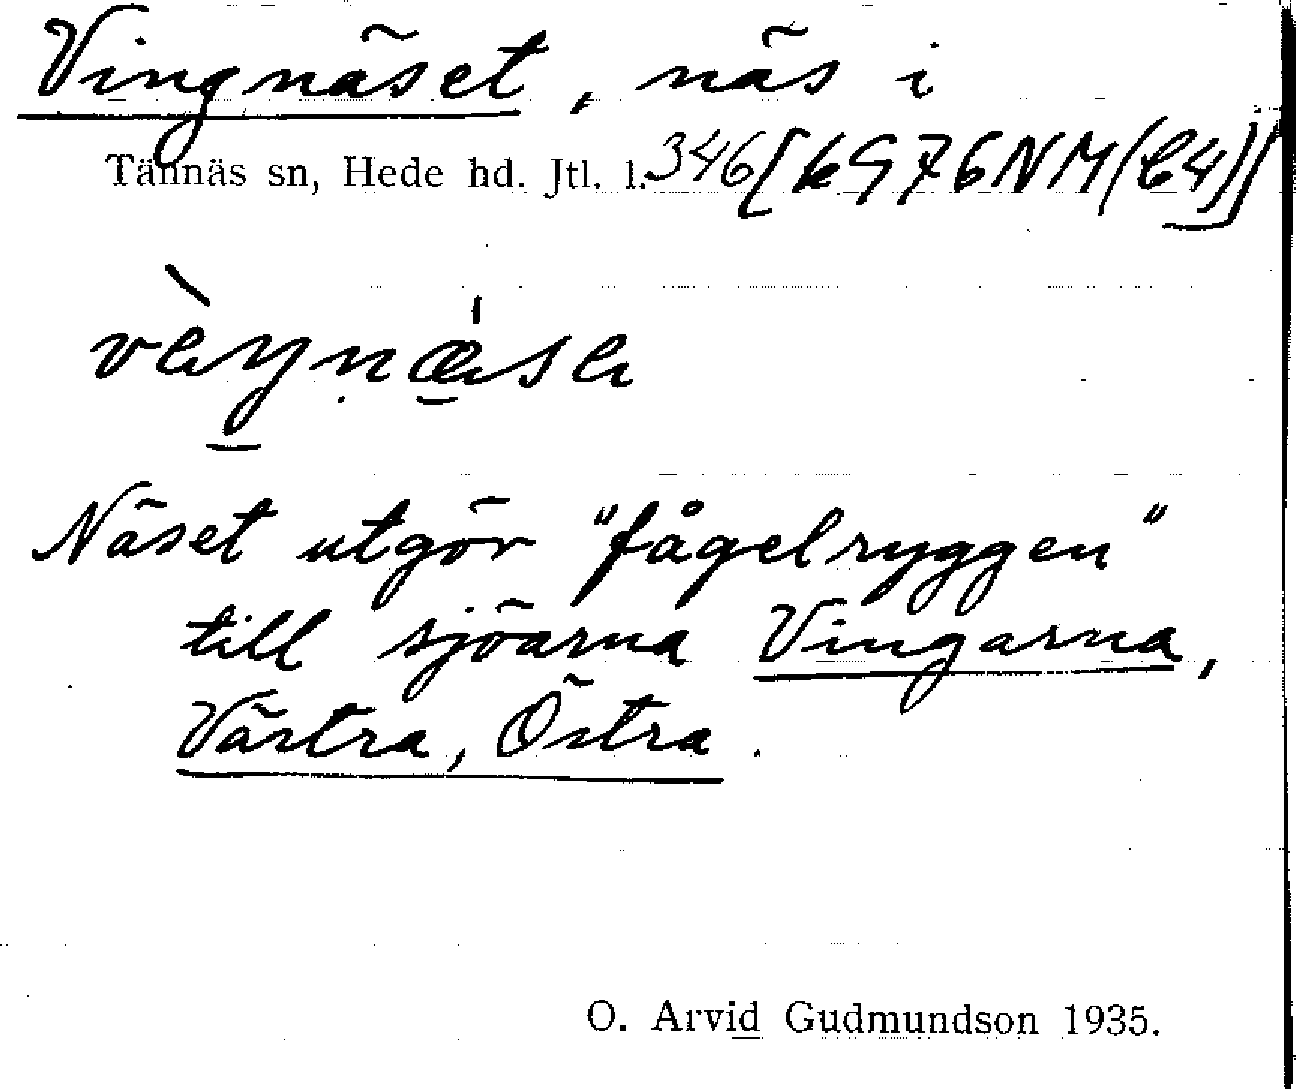 Vingnäset, näs i
Tännäs sn, Hede hd. Jtl. l. 346
Näset utgör "fågelryggen"
till sjöarna Vingarna,
Västra, Östra.
O. Arvid Gudmundson 1935.